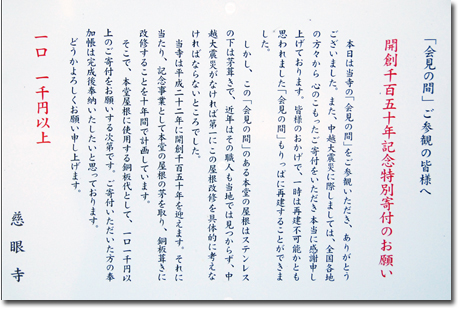 「会見の間」ご参観の皆様へ
開創千百五十年記念特別寄付のお願い
本日は当寺の「会見の間」をご参観いただき、ありがとう
ございました。また、中越大震災に際しましては、全国各地
の方々から心のこもったご寄付をいただき本当に感謝申し
上げております。皆様のおかげで、一時は再建不可能かとも
思われました「会見の間」もりっぱに再建することができま
した。
しかし、この「会見の間」のある本堂の屋根はステンレス
の下は茅葺きで、近年はその職人も当地では見つからず、中
越大震災がなければ第一にこの屋根改修を具体的に考えな
ければならないところでした。
当寺は平成二十二年に開創千百五十年を迎えます。それに
当たり、記念事業として本堂の屋根の茅を取り、銅板葺きに
改修することを十年間で計画しています。
そこで、本堂屋根に使用する銅板代として、一口一千円以
上のご寄付をお願いする次第です。ご寄付いただいた方の奉
加帳は完成後奉納いたしたいと思っております。
どうかよろしくお願い申し上げます。
一口 一千円以上
慈眼寺